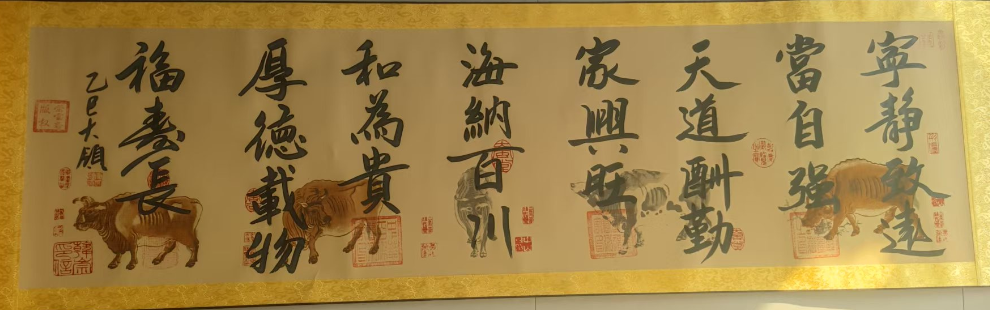 寧靜致遠
當自强
天道酬勤
家興旺
海納百川
和為貴
厚德載物
福壽長
乙巳大領